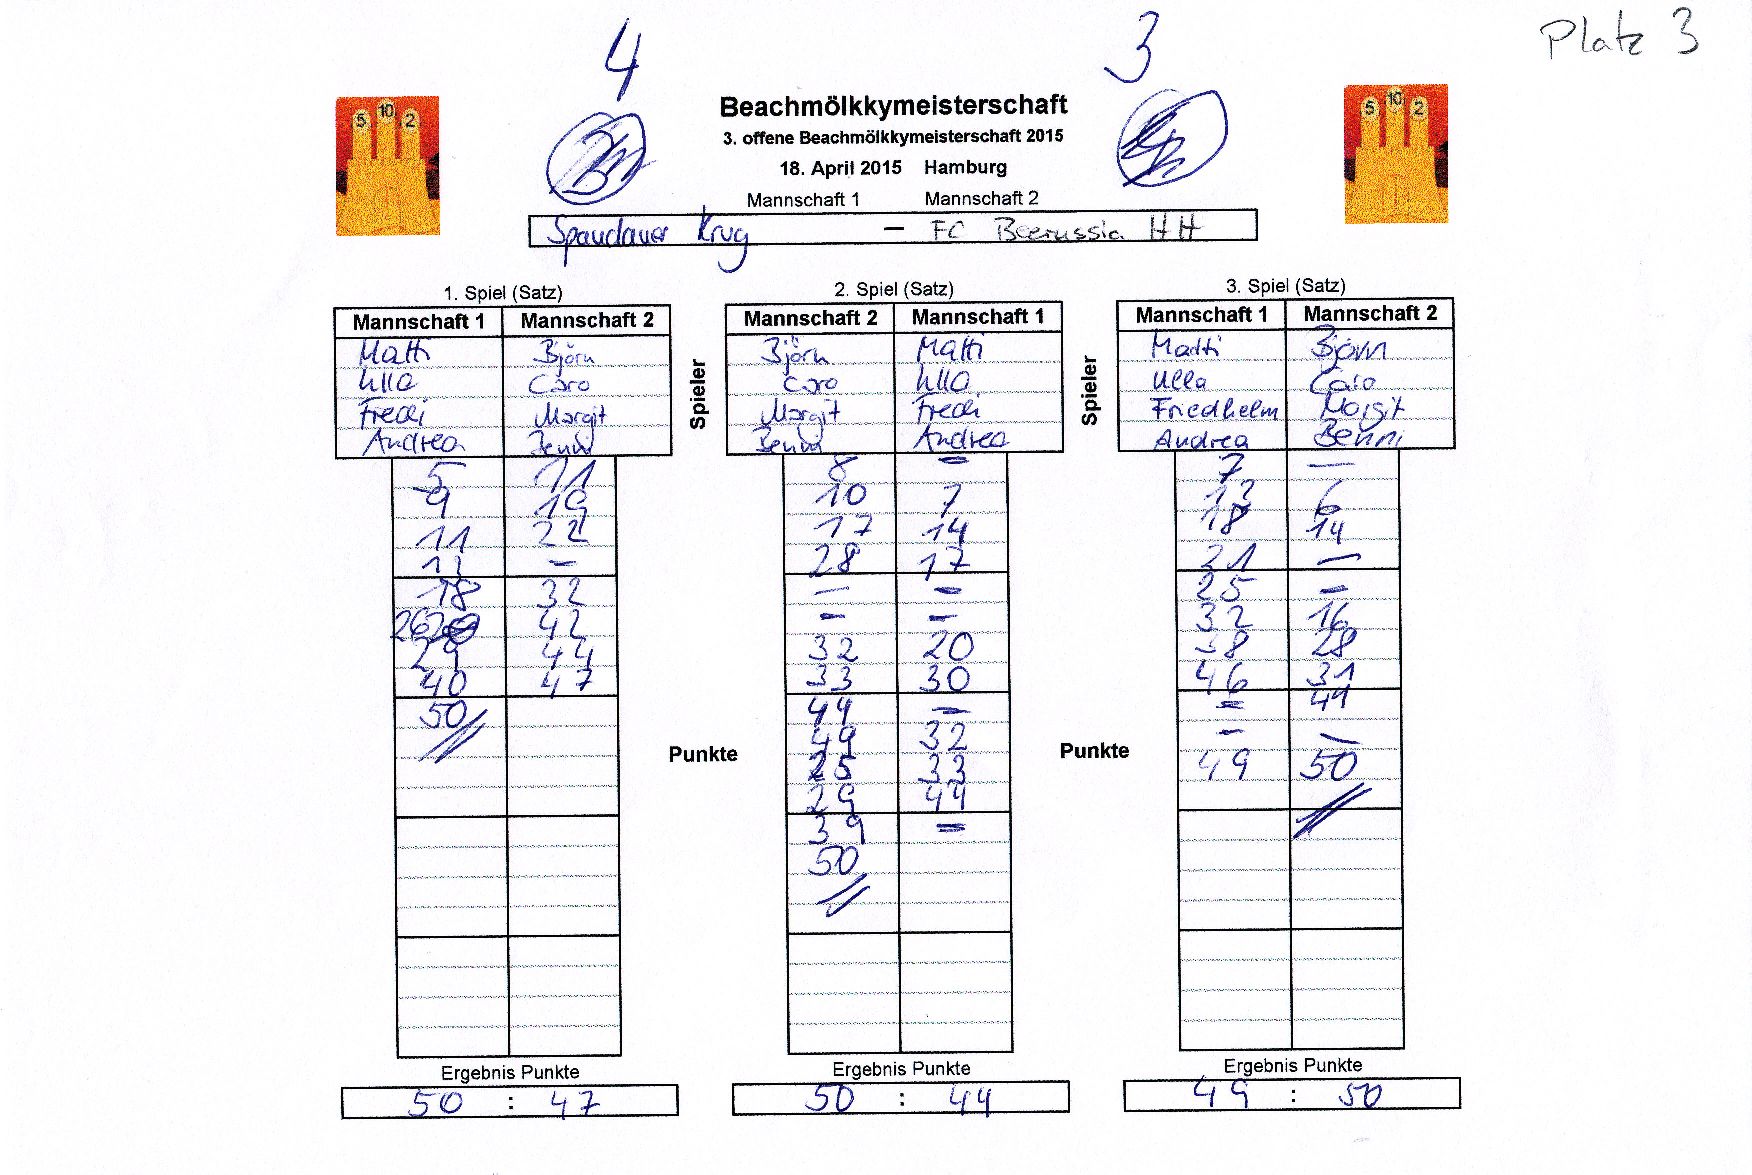 Platz 3
4 3
5 10 2
5 10 2
Beachmölkkymeisterschaft
3. offene Beachmölkkymeisterschaft 2015
18. April 2015 Hamburg
Mannschaft 1 Mannschaft 2
Spandauer Krug – FC Beerussia HH
1. Spiel (Satz)
Mannschaft 1 Mannschaft 2
Matti Björn
Ulla Caro
Fredi Margit
Andrea Benni
5 11
9 19
11 22
13 –
18 32
26 42
29 44
40 47
50
Ergebnis Punkte
50 : 47
Spieler
Punkte
2. Spiel (Satz)
Mannschaft 2 Mannschaft 1
Björn Matti
Caro Ulla
Margit Fredi
Benni Andrea
8 –
10 7
17 14
28 17
– –
– –
32 20
33 30
44 –
49 32
25 33
29 44
39 –
50
Ergebnis Punkte
50 : 44
Spieler
Punkte
3. Spiel (Satz)
Mannschaft 1 Mannschaft 2
Matti Björn
Ulla Caro
Friedhelm Margit
Andrea Benni
7 –
13 6
18 14
21 –
25 –
32 16
38 28
46 31
– 41
– –
49 50
Ergebnis Punkte
49 : 50